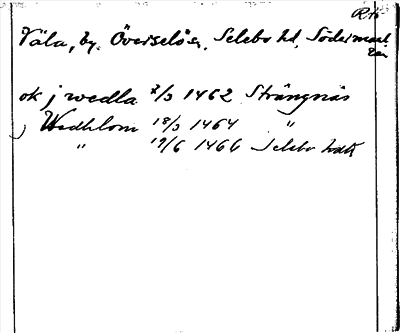 Väla, by, Överselö sn, Selebo hd, Söderman-
ok j wedla 2/3 1462 Strängnäs
j Wedhlom 18/3 1464 "
" 19/6 1466 Selebo hdr